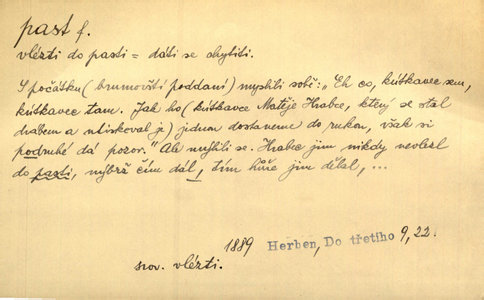 past f.
vlézti do pasti = dáti se chytiti.
S počátku (brumovští poddaní) myslili sobě: „Eh co, kútkavec sem,
kútkavec tam. Jak ho (kútkavce Matěje Hrabce, který se stal
drabem a mliskoval je) jednou dostaneme do rukou, však si
podruhé dá pozor." Ale mýlili se. Hrabec jim nikdy nevlezl
do pasti, nýbrž čím dál, tím hůře jim dělal, ...
1889 Herben, Do třetího 9, 22.
srov. vlézti.